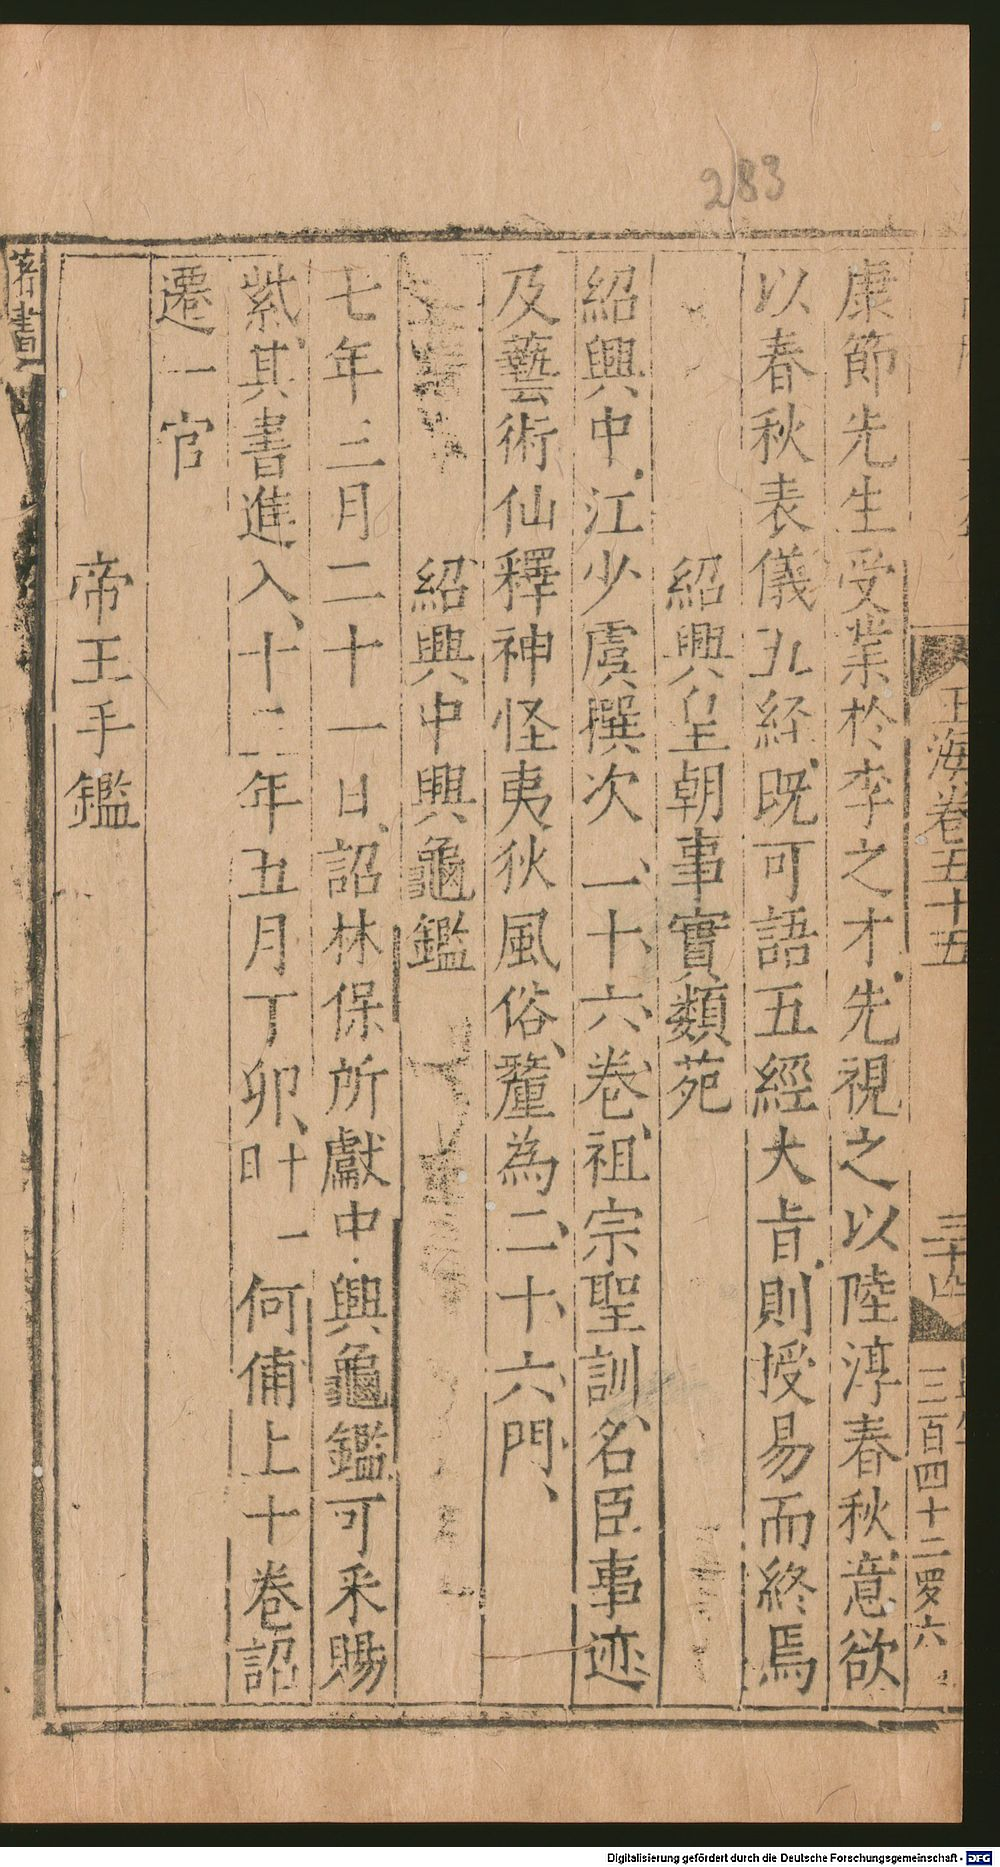 283
玉海卷五十五
三十四
三百四十二
六
康節先生受業於李之才先視之以陸淳春秋意欲
以春秋表儀五経既可語五經大旨則授易而終焉
紹興皇朝事實類苑
紹興中江少虞撰次一十六卷祖宗聖訓名臣事迹
及藝術仙釋神怪夷狄風俗釐為二十六門
紹興中興龜鑑
七年三月二十一日詔林保所獻中興龜鑑可采賜
紫其書進入十二年五月丁卯十一日何俌上十卷詔
遷一官
帝王手鑑
著書
Digitalisierung gefördert durch die Deutsche Forschungsgemeinschaft - DFG